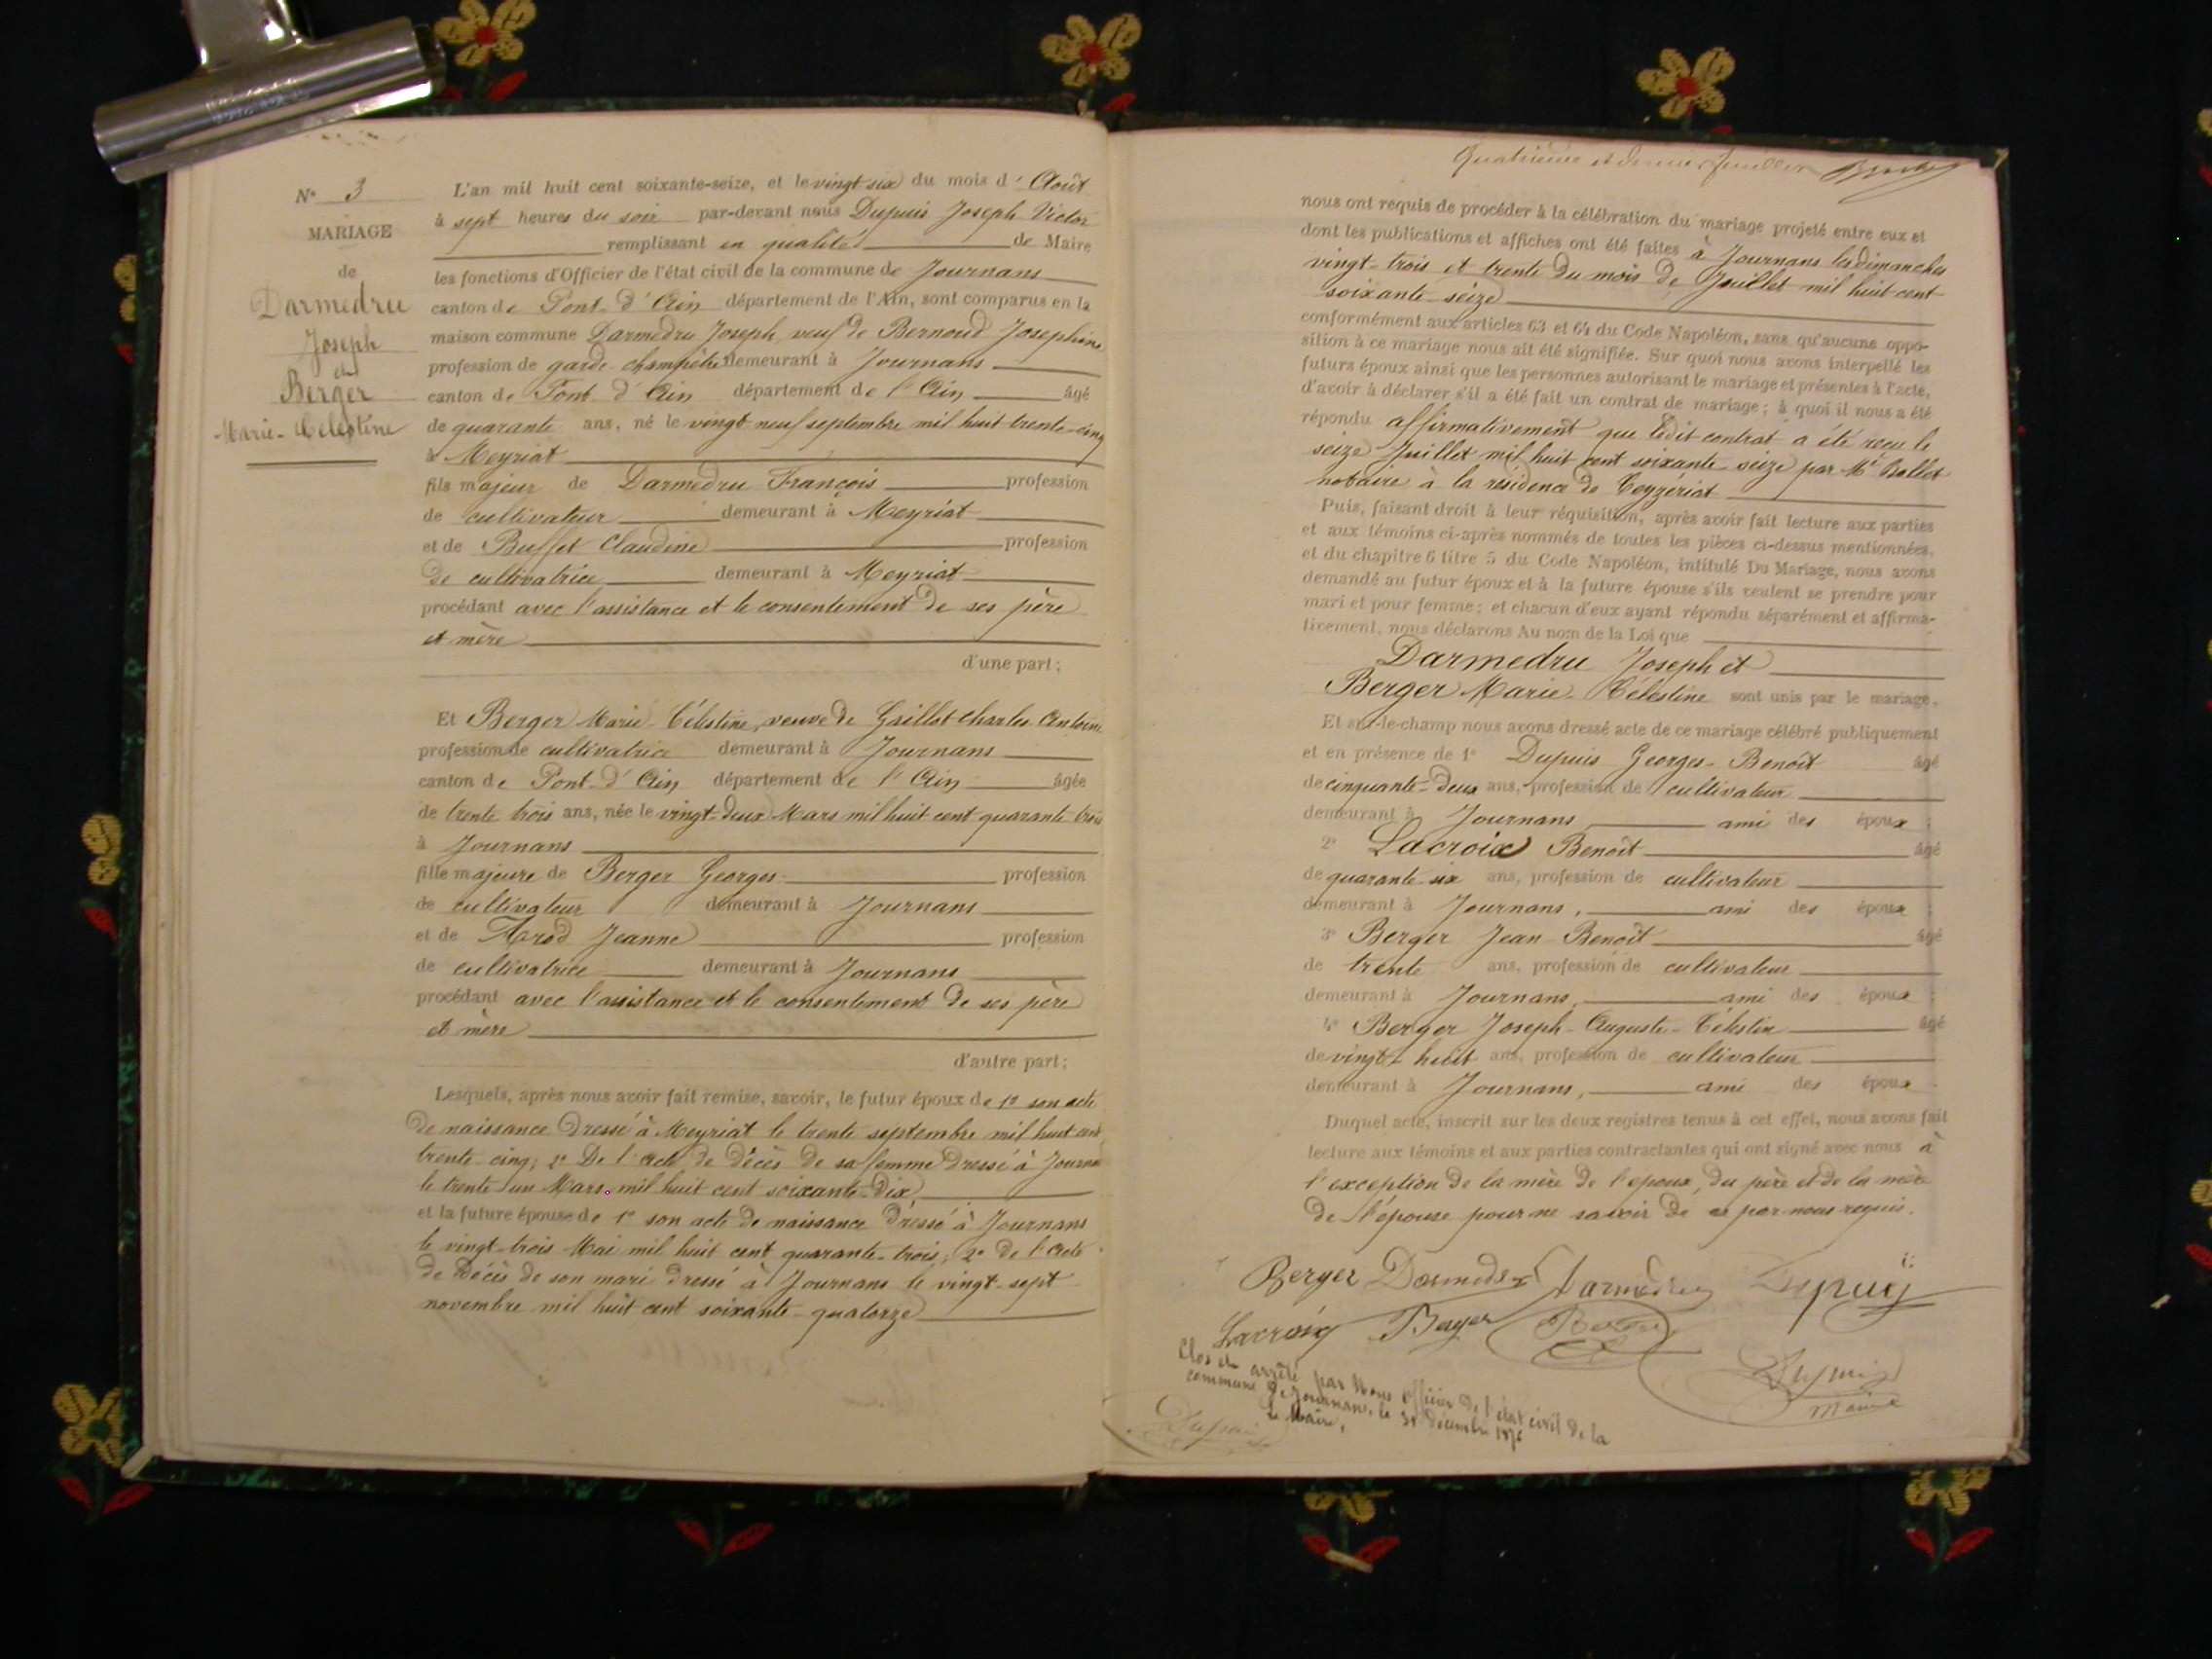 N° 3
MARIAGE
de
Darmedru
Joseph
et
Berger
Marie-Célestine
L'an mil huit cent soixante-seize, et le vingt six du mois d'Août
à sept heures du soir par-devant nous Dupuis Joseph Victor
remplissant en qualité de Maire
les fonctions d'Officier de l'état civil de la commune de Journans
canton de Pont-d'Ain département de l'Ain, sont comparus en la
maison commune Darmedru Joseph veuf de Bernoud Josephine
profession de garde-champêtre demeurant à Journans
canton de Pont d'Ain département de l'Ain âgé
de quarante ans, né le vingt neuf septembre mil huit trente-cinq
à Meyriat
fils majeur de Darmedru François profession
de cultivateur demeurant à Meyriat
et de Buffet Claudine profession
de cultivatrice demeurant à Meyriat
procédant avec l'assistance et le consentement de ses père
et mère
d'une part;
Et Berger Marie-Célestine, veuve de Gaillot Charles Antoine
profession de cultivatrice demeurant à Journans
canton de Pont-d'Ain département de l'Ain âgée
de trente trois ans, née le vingt-deux Mars mil huit cent quarante trois
à Journans
fille majeure de Berger Georges profession
de cultivateur demeurant à Journans
et de Arod Jeanne profession
de cultivatrice demeurant à Journans
procédant avec l'assistance et le consentement de ses père
et mère
d'autre part;
Lesquels, après nous avoir fait remise, savoir, le futur époux de 1° son acte
de naissance dressé à Meyriat le trente septembre mil huit cent
trente-cinq; 2° De l'acte de décès de sa femme dressé à Journans
le trente un Mars mil huit cent soixante-dix,
et la future épouse de 1° son acte de naissance dressé à Journans
le vingt-trois Mai mil huit cent quarante-trois; 2° de l'acte
de décès de son mari dressé à Journans le vingt-sept
novembre mil huit cent soixante-quatorze
Quatrième et dernier feuillet
nous ont requis de procéder à la célébration du mariage projeté entre eux et
dont les publications et affiches ont été faites à Journans les dimanches
vingt-trois et trente du mois de Juillet mil huit cent
soixante-seize
conformément aux articles 63 et 64 du Code Napoléon, sans qu'aucune oppo-
sition à ce mariage nous ait été signifiée. Sur quoi nous avons interpellé les
futurs époux ainsi que les personnes autorisant le mariage et présentes à l'acte,
d'avoir à déclarer s'il a été fait un contrat de mariage; à quoi il nous a été
répondu affirmativement que ledit contrat a été reçu le
seize Juillet mil huit cent soixante-seize par Me Bollet
notaire à la résidence de Ceyzériat
Puis, faisant droit à leur réquisition, après avoir fait lecture aux parties
et aux témoins ci-après nommés de toutes les pièces ci-dessus mentionnées,
et du chapitre 6 titre 5 du Code Napoléon, intitulé Du Mariage, nous avons
demandé au futur époux et à la future épouse s'ils veulent se prendre pour
mari et pour femme; et chacun d'eux ayant répondu séparément et affirma-
tivement, nous déclarons Au nom de la Loi que
Darmedru Joseph et
Berger Marie-Célestine sont unis par le mariage.
Et sur-le-champ nous avons dressé acte de ce mariage célébré publiquement
et en présence de 1° Dupuis Georges-Benoît âgé
de cinquante-deux ans, profession de cultivateur
demeurant à Journans ami des époux ;
2° Lacroix Benoît âgé
de quarante-six ans, profession de cultivateur
demeurant à Journans, ami des époux ;
3° Berger Jean-Benoît âgé
de trente ans, profession de cultivateur
demeurant à Journans, ami des époux ;
4° Berger Joseph-Auguste-Célestin âgé
de vingt-huit ans, profession de cultivateur
demeurant à Journans, ami des époux
Duquel acte, inscrit sur les deux registres tenus à cet effet, nous avons fait
lecture aux témoins et aux parties contractantes qui ont signé avec nous à
l'exception de la mère de l'époux, du père et de la mère
de l'épouse pour ne savoir de ce par nous requis.
Berger Darmedru Darmedru Depuy
Lacroix Berger Berger
Dupuis
Maire
Clos et arrêté par Nous officier de l'état civil de la
commune de Journans, le 31 décembre 1876
Le Maire,
Dupuis